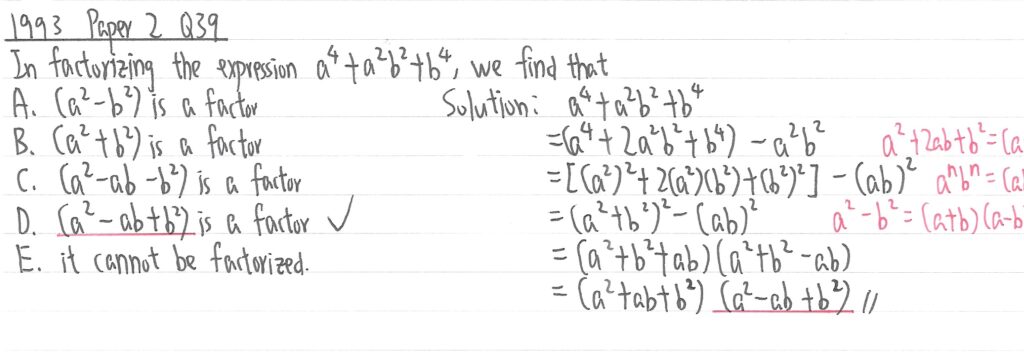 1993 Paper 2 Q39
In factorizing the expression a⁴+a²b²+b⁴, we find that
A. (a²-b²) is a factor
B. (a²+b²) is a factor
C. (a²-ab-b²) is a factor
D. (a²-ab+b²) is a factor ✓
E. it cannot be factorized.
Solution: a⁴+a²b²+b⁴
=(a⁴+2a²b²+b⁴)-a²b² a²+2ab+b²=(a
=[(a²)²+2(a²)(b²)+(b²)²]-(ab)² aⁿbⁿ=(a
=(a²+b²)²-(ab)² a²-b²=(a+b)(a-b
=(a²+b²+ab)(a²+b²-ab)
=(a²+ab+b²)(a²-ab+b²)//